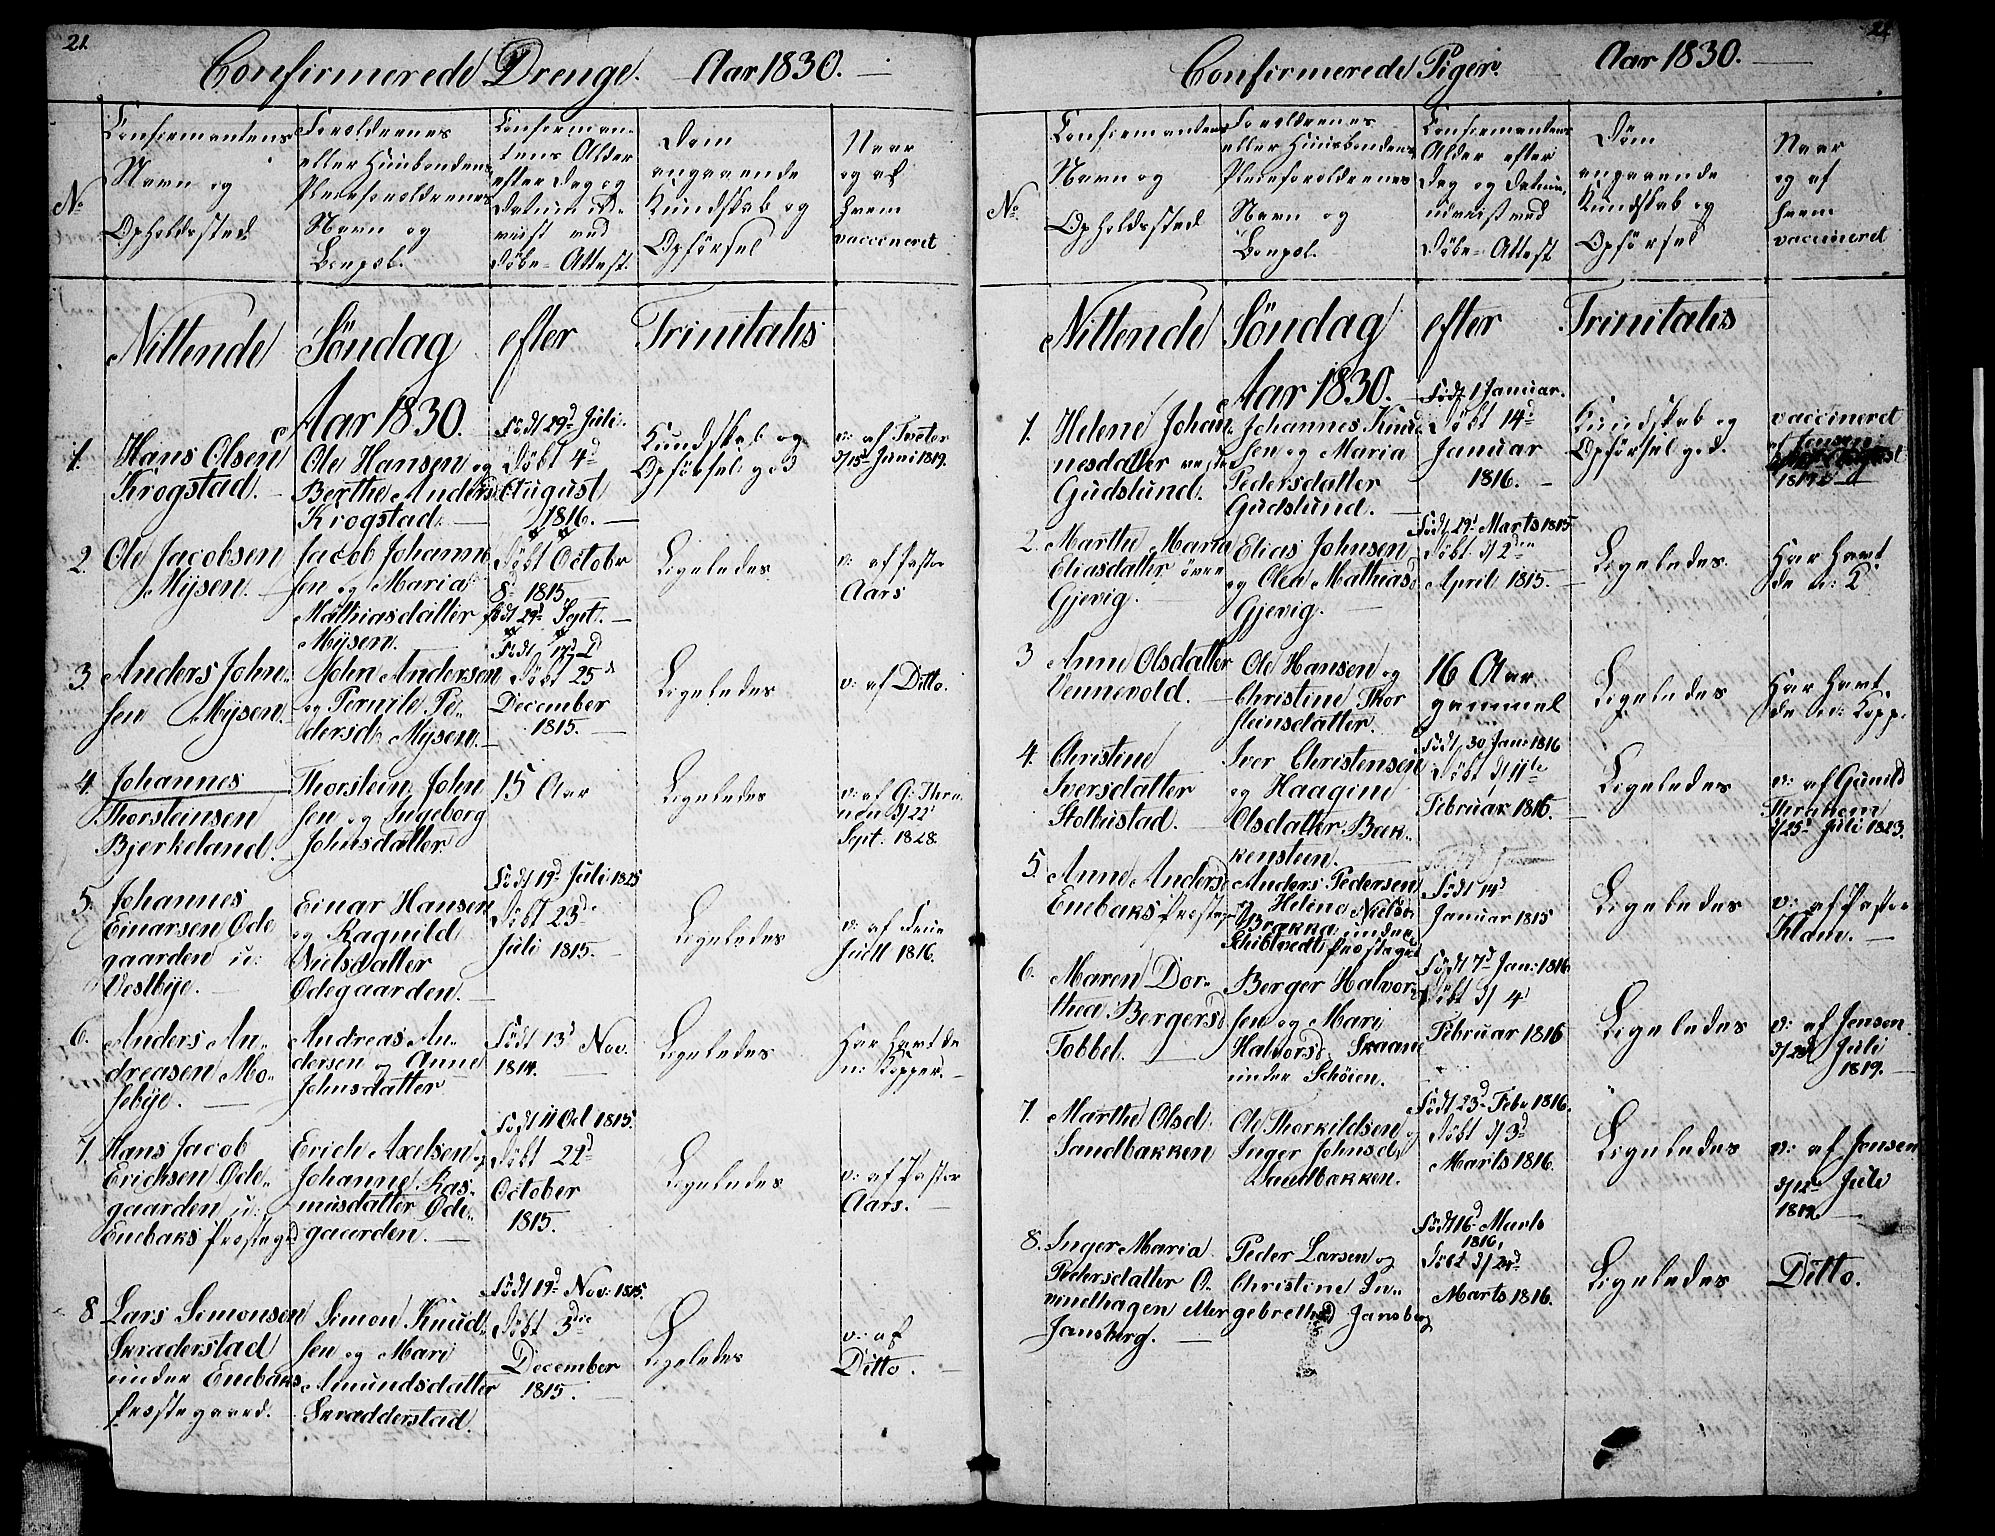 21.
Confirmerede Drenge. Aar 1830.
No
Confirmantens
Navn og
Opholdssted
Foreldrenes
eller Huusbondens
Pleieforeldrenes
Navn og
Bopæl.
Confirman-
tens Alder
efter Dag og
Datum ud-
viist ved
Døbe-Attest.
Dom
angaaende
Kundskab og
Opførsel
Naar
og af
hvem
vaccineret
Nittende Söndag efter Trinitatis
Aar 1830.
1.
Hans Olsen
Krogstad.
Ole Hansen og
Berthe Andersd
Krogstad.
Födt 29d Juli.
Döbt 4d
August
1816.
Kundskab og
Opførsel god
v: af Tveter
d/15d Juni 1819.
2.
Ole Jacobsen
Mÿsen.
Jacob Johann
sen og Maria
Mathiasdatter
Mÿsen.
Döbt October
8d 1815.
födt 29d Sept.
Ligeledes.
v: af Pastor
Aars
3.
Anders John-
sen Mÿsen.
John Andersen
og Pernile Pe-
dersd. Mÿsen.
Födt 17d
Döbt 25d
December
1815.
Ligeledes
v: af Ditto.
4.
Johannes
Thorsteinsen
Bjerkeland.
Thorstein John
sen og Ingeborg
Johnsdatter
15 Aar
Ligeledes
v: af G: Thro-
d/22d
Sept. 1828.
5.
Johannes
Einarsen Öde
gaarden u:
Vestbÿe.
Einar Hansen
og Ragnild
Nielsdatter
Ödegaarden.
Födt 19d Juli 1825
Döbt 23d
Juli 1815.
Ligeledes
v: af Frue
Juell 1816.
6.
Anders An-
dreasen Mo-
sebÿe.
Andreas An-
dersen og Anne
Johnsdatter
Födt 13d Nov.
1814.
Ligeledes
Har havt de
n: Kopper.
7.
Hans Jacob
Ericksen Öde-
gaarden u:
Enebaks Præsteg
Erich Axelsen og
Johanne Ras-
musdatter Öde-
gaarden.
Födt 11 Oct 1815.
Döbt 22d
October
1815.
Ligeledes
v: af Pastor
Aars.
8
Lars Simonsen
Skraderstad
under Enebaks
Præstegaard.
Simon Knud-
sen og Mari
Amundsdatter
Skradderstad.
Födt 19d Nov: 1815.
Döbt 3die
December
1815.
Ligeledes
v: af
Ditto.
21
Confirmerede Piger. Aar 1830.
No.
Confirmantens
Navn og
Opholdssted
Foreldrenes
eller Huusbondens
Pleieforeldrenes
Navn og
Bopæl.
Confirmantens
Alder efter
Dag og Datum,
udviist ved
Döbe-Attest
Dom
angaaende
Kundskab og
Opförsel
Naar
og af
hvem
vaccineret
Nittende Söndag efter Trinitatis
Aar 1830.
1.
Helene Johan
nesdatter vestre
Gudslund.
Johannes Knud
sen og Maria
Pedersdatter
Gudslund.
Födt 1 Januar.
Döbt 14d
Januar
1816.
Kundskab og
Opförsel god.
vaccineret
af Jensen
2.
Marthe Maria
Eliasdatter övre
Gjevig.
Elias Johnsen
og Olea Mathiasd
Gjevig.
Födt 29d Marts 1815
Döbt d/2den
April 1815.
Ligeledes.
Har havt
de n: K.
3
Anne Olsdatter
Vennevold.
Ole Hansen og
Christine Thor
steinsdatter.
16 Aar
gammel
Ligeledes
Har havt
de n: Kopp.
4.
Christine
Iversdatter
Stolbustad.
Iver Christensen
og Haagine
Olsdatter Bak-
kenstein.
Födt 30 Jan: 1816
Döbt d/11te
Februar 1816.
Ligeledes
v: af Gunild
Thronhem
d/25d Juli 1823.
5.
Anne Andersd
Enebaks Præsteg
Anders Pedersen
og Helena Nielsd.
Brækna under
Præsteg
Födt 14d
Januar 1815
Ligeledes
v: af Pastor
Klam.
6.
Maren Dor-
thea Bergersd
Tobbel.
Berger Halvor
sen og Mari
Halvorsd. Skaane
under Schöien.
Födt 7d Jan: 1816
Döbt d/4d
Februar 1816
Ligeledes
v: af Jensen
Juli
1819.
7.
Marthe Olsd.
Sandbakken
Ole Thorkildsen og
Inger Johnsd.
Sandbakken.
Födt 23d Febr 1816.
Döbt d/3d
Marts 1816.
Ligeledes
v: af Jensen
d/12d Juli
8.
Inger Maria
Pedersdatter O-
vendhagen eller
Jansberg.
Peder Larsen og
Christine In-
gebrethsd Jansberg
Födt 16d Marts
1816,
Döbt d/24d
Marts 1816.
Ligeledes
Ditto.